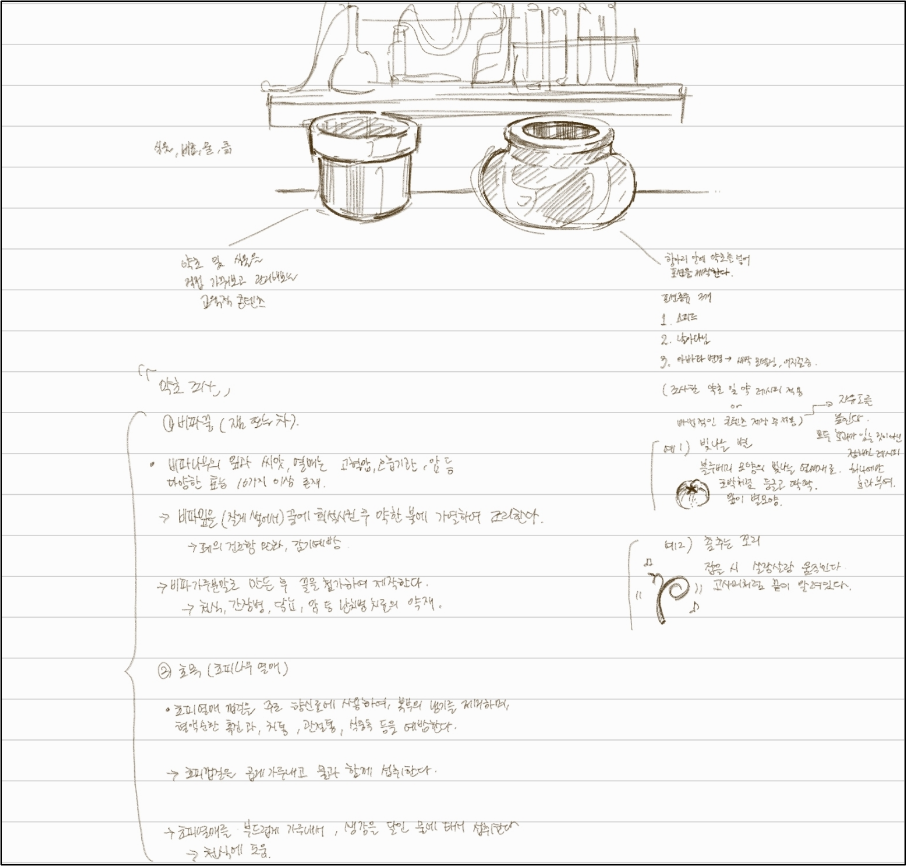 씨앗, 비료, 물, 흙
약초 및 씨앗을
직접 가꿔보고 관리해보는
교육적 콘텐츠
항아리 안에 약초를 넣어
포션을 제작한다.
포션종류 3개
1. 스피드
2. 날아다님
3. 아바타 변경 →
(조사한 약초 및 약 레시피 적용
or
콘텐츠 제작 후 적용)
자유도를
높인다.
모든 효과가 있는 것이 아닌
정해진 레시피
하나에만
효과부여.
예1) 빛나는 별
블루베리 모양의 빛나는 열매재료.
호박처럼 둥글고 딱딱.
꽃이 별모양.
예2) 춤추는 꼬리
잡을 시 살랑살랑 움직인다
고사리처럼 끝이 말려있다.
약초 조사
① 비파꿀 (잼 또는 차).
• 비파나무의 잎과 씨앗, 열매는 고혈압, 호흡기관, 암 등
다양한 효능 10가지 이상 존재.
→ 비파잎을 (잘게 썰어서) 꿀에 희석시킨 후 약한 불에 가열하여 조리한다.
→ 폐의 건조함 완화, 감기예방
→ 비파가루분말로 만든 후 꿀을 첨가하여 제작한다.
→ 천식, 간장병, 당뇨, 암 등 난치병 치료의 약재.
② 초목 (초피나무 열매)
• 초피열매 껍질은 주로 향신료에 사용하며, 복부의 냉기를 제거하며,
혈액순환 촉진과, 치통, 관절통, 식중독 등을 예방한다.
→ 초피껍질은 곱게 가루내고 물과 함께 섭취한다.
→ 초피열매를 부드럽게 가루내서, 생강을 달인 물에 타서 섭취한다
→ 천식에 도움.